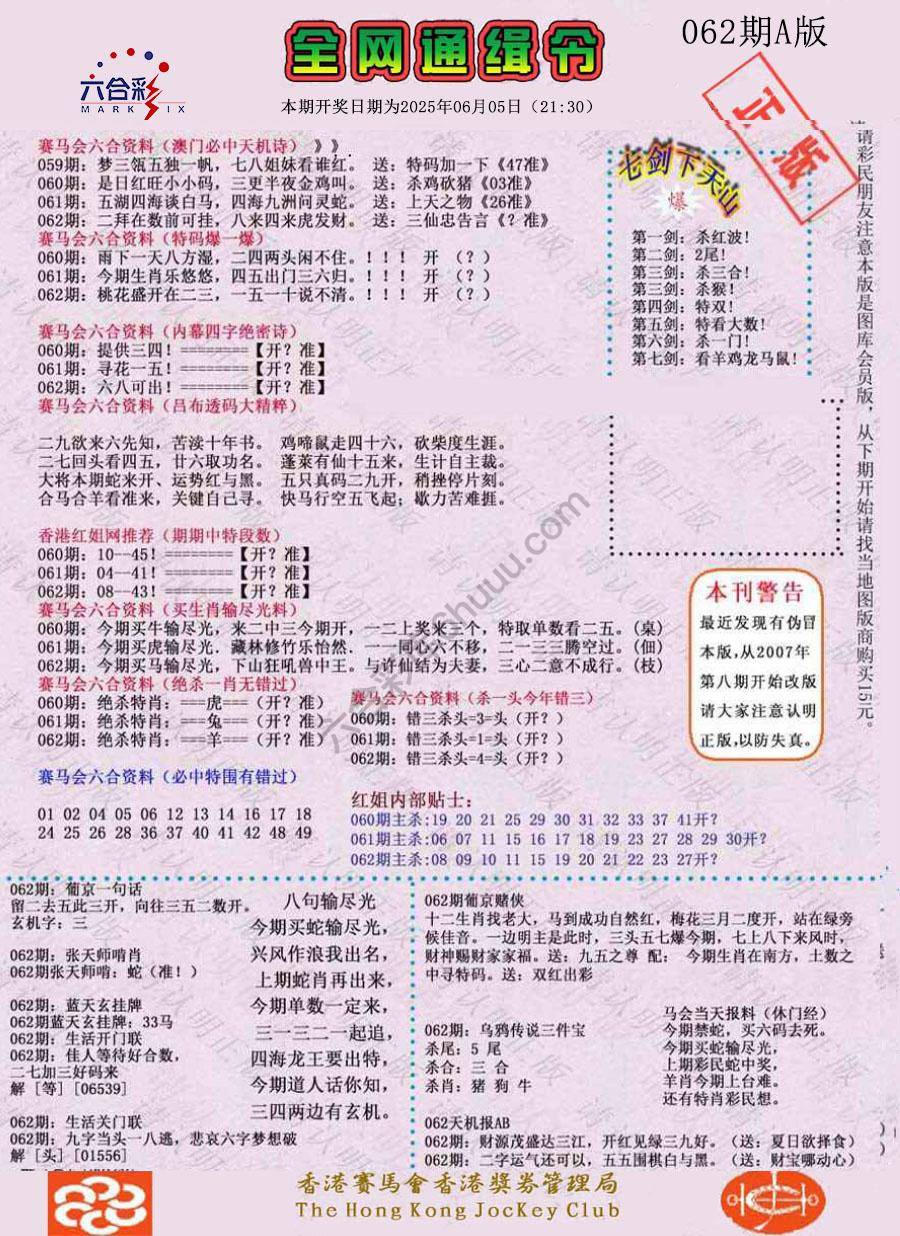 062期A版
全网通缉令
六合彩
MARK SIX
本期开奖日期为2025年06月05日（21:30）
正版
赛马会六合资料（澳门必中天机诗）》》
059期：梦三瓴五独一帆，七八姐妹看谁红。 送：特码加一下《47准》
060期：是日红旺小小码，三更半夜金鸡叫。 送：杀鸡砍猪《03准》
061期：五湖四海谈白马，四海九洲问灵蛇。 送：上天之物《26准》
062期：二拜在数前可挂，八来四来虎发财。 送：三仙忠告言《？准》
赛马会六合资料（特码爆一爆）
060期：雨下一天八方湿，二四两头闲不住。！！！ 开 （？）
061期：今期生肖乐悠悠，四五出门三六归。！！！ 开 （？）
062期：桃花盛开在二三，一五一十说不清。！！！ 开 （？）
赛马会六合资料（内幕四字绝密诗）
060期：提供三四！========【开？准】
061期：寻花一五！========【开？准】
062期：六八可出！========【开？准】
赛马会六合资料（吕布透码大精粹）
二九欲来六先知，苦渎十年书。 鸡啼鼠走四十六，砍柴度生涯。
二七回头看四五，廿六取功名。 蓬莱有仙十五来，生计自主裁。
大将本期蛇来开、运势红与黑。 五只真码二九开，稍挫停片刻。
合马合羊看准来，关键自己寻。 快马行空五飞起；歇力苦难捱。
七剑下天山
爆
第一剑：杀红波！
第二剑：2尾！
第三剑：杀三合！
第三剑：杀猴！
第四剑：特双！
第五剑：特看大数！
第六剑：杀一门！
第七剑：看羊鸡龙马鼠！
请彩民朋友注意本版是图库会员版，从下期开始请找当地图版商购买15元。
香港红姐网推荐（期期中特段数）
060期：10--45！========【开？准】
061期：04--41！========【开？准】
062期：08--43！========【开？准】
赛马会六合资料（买生肖输尽光料）
060期：今期买牛输尽光，来二中三今期开，一二上奖来三个，特取单数看二五。（桌）
061期：今期买虎输尽光．藏林修竹乐怡然．一一同心六不移，二一三三腾空过。（佃）
062期：今期买马输尽光，下山狂吼兽中王。与许仙结为夫妻，三心二意不成行。（枝）
赛马会六合资料（绝杀一肖无错过）
060期：绝杀特肖：===虎===（开？准）
061期：绝杀特肖：===兔===（开？准）
062期：绝杀特肖：===羊===（开？准）
赛马会六合资料（杀一头今年错三）
060期：错三杀头=3=头（开？）
061期：错三杀头=1=头（开？）
062期：错三杀头=4=头（开？）
本刊警告
最近发现有伪冒
本版，从2007年
第八期开始改版
请大家注意认明
正版，以防失真。
赛马会六合资料（必中特围有错过）
01 02 04 05 06 12 13 14 16 17 18
24 25 26 28 36 37 40 41 42 48 49
红姐内部贴士：
060期主杀:19 20 21 25 29 30 31 32 33 37 41开？
061期主杀:06 07 11 15 16 17 18 19 23 27 28 29 30开？
062期主杀:08 09 10 11 15 19 20 21 22 23 27开？
062期：葡京一句话
留二去五此三开，向往三五二数开。
玄机字：三
062期：张天师啃肖
062期张天师啃：蛇（准！）
062期：蓝天玄挂牌
062期蓝天玄挂牌：33马
062期：生活开门联
062期：佳人等待好合数，
二七加三好码来
解 [等][06539]
062期：生活关门联
062期：九字当头一八逃，悲哀六字梦想破
解 [头][01556]
八句输尽光
今期买蛇输尽光，
兴风作浪我出名，
上期蛇肖再出来，
今期单数一定来，
三一三二一起追，
四海龙王要出特，
今期道人话你知，
三四两边有玄机。
062期葡京赌侠
十二生肖找老大，马到成功自然红，梅花三月二度开，站在绿旁
候佳音。一边明主是此时，三头五七爆今期，七上八下来风时，
财神赐财家家福。送：九五之尊 配： 今期生肖在南方，土数之
中寻特码。送：双红出彩
062期：乌鸦传说三件宝
杀尾：5 尾
杀合：三 合
杀肖：猪 狗 牛
马会当天报料（休门经）
今期禁蛇，买六码去死。
今期买蛇输尽光，
上期彩民蛇中奖，
羊肖今期上台难。
还有特肖彩民想。
062天机报AB
062期：财源茂盛达三江，开红见绿三九好。（送：夏日欲择食）
062期：二字运气还可以，五五围棋白与黑。（送：财宝哪动心）
香港賽馬會香港獎券管理局
The Hong Kong JocKey Club